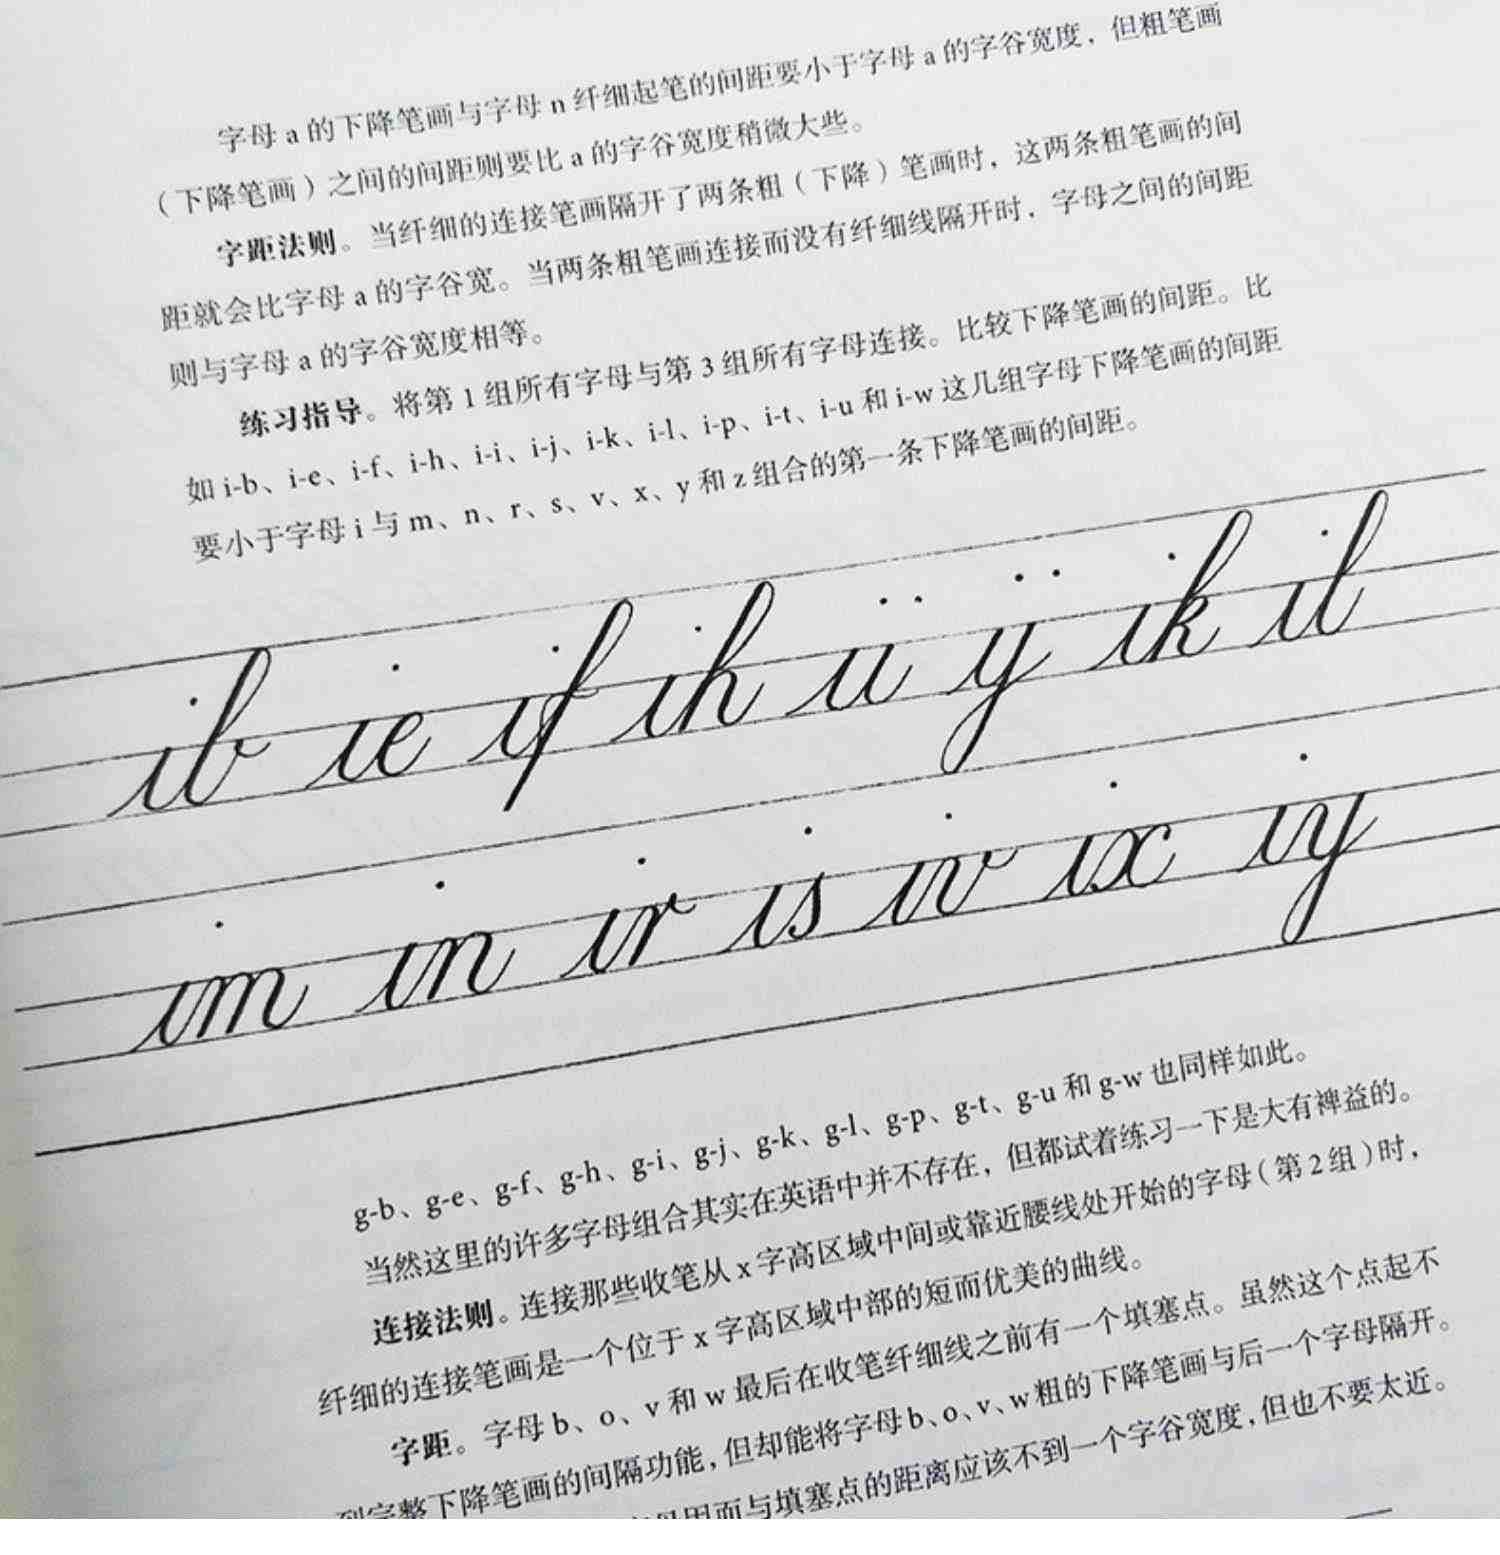 字母 a 的下降笔画与字母 n 纤细起笔的间距要小于字母 a 的字谷宽度，但粗笔画
（下降笔画）之间的间距则要比 a 的字谷宽度稍微大些。
字距法则。当纤细的连接笔画隔开了两条粗（下降）笔画时，这两条粗笔画的间
距就会比字母 a 的字谷宽。当两条粗笔画连接而没有纤细线隔开时，字母之间的间距
则与字母 a 的字谷宽度相等。
练习指导。将第 1 组所有字母与第 3 组所有字母连接。比较下降笔画的间距。比
如 i-b、i-e、i-f、i-h、i-i、i-j、i-k、i-l、i-p、i-t、i-u 和 i-w 这几组字母下降笔画的间距
要小于字母 i 与 m、n、r、s、v、x、y 和 z 组合的第一条下降笔画的间距。
ib ie if ih ii ij ik il
im in ir is iv ix iy
g-b、g-e、g-f、g-h、g-i、g-j、g-k、g-l、g-p、g-t、g-u 和 g-w 也同样如此。
当然这里的许多字母组合其实在英语中并不存在，但都试着练习一下是大有裨益的。
连接法则。连接那些收笔从 x 字高区域中间或靠近腰线处开始的字母（第 2 组）时，
纤细的连接笔画是一个位于 x 字高区域中部的短而优美的曲线。
字距。字母 b、o、v 和 w 最后在收笔纤细线之前有一个填塞点。虽然这个点起不
到完整下降笔画的间隔功能，但却能将字母 b、o、v、w 粗的下降笔画与后一个字母隔开。
与填塞点的距离应该不到一个字谷宽度，但也不要太近。